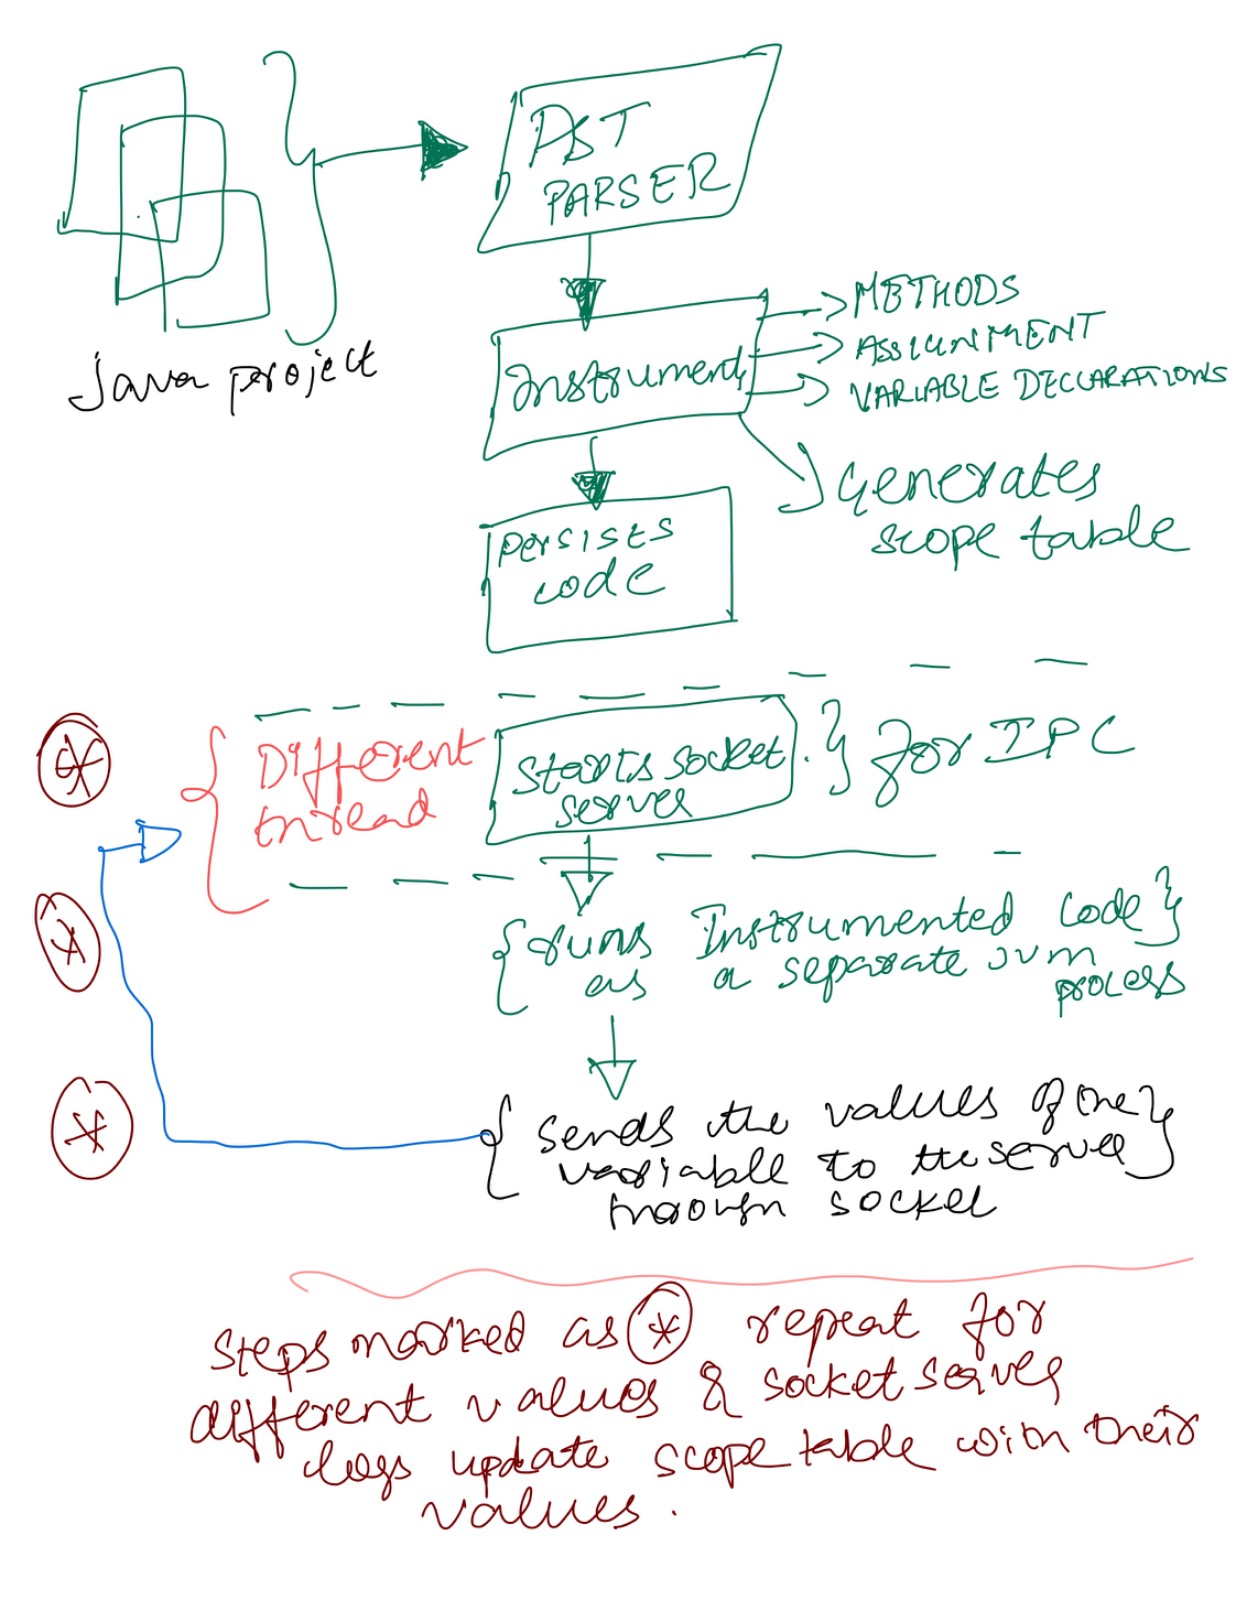 AST
PARSER
Java project
Instrument
METHODS
ASSIGNMENT
VARIABLE DECLARATIONS
Generates
scope table
Persists
code
*
Different
thread
Starts socket
server
for IPC
*
runs Instrumented code
as a separate JVM
process
*
Sends the values of the
variable to the server
through socket
Steps marked as * repeat for
different values & socket server
logs update scope table with their
values.